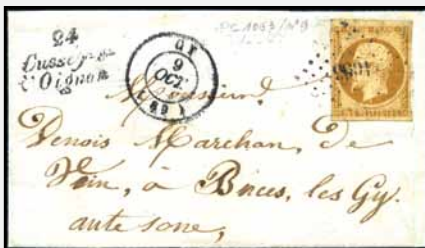 24
Cussey-sur
l'Oignon
GY
9
OCT.
(69)
1063
Monsieur
Denois Marchan, de
Vin, à Buces, les Gy.
aute sone,